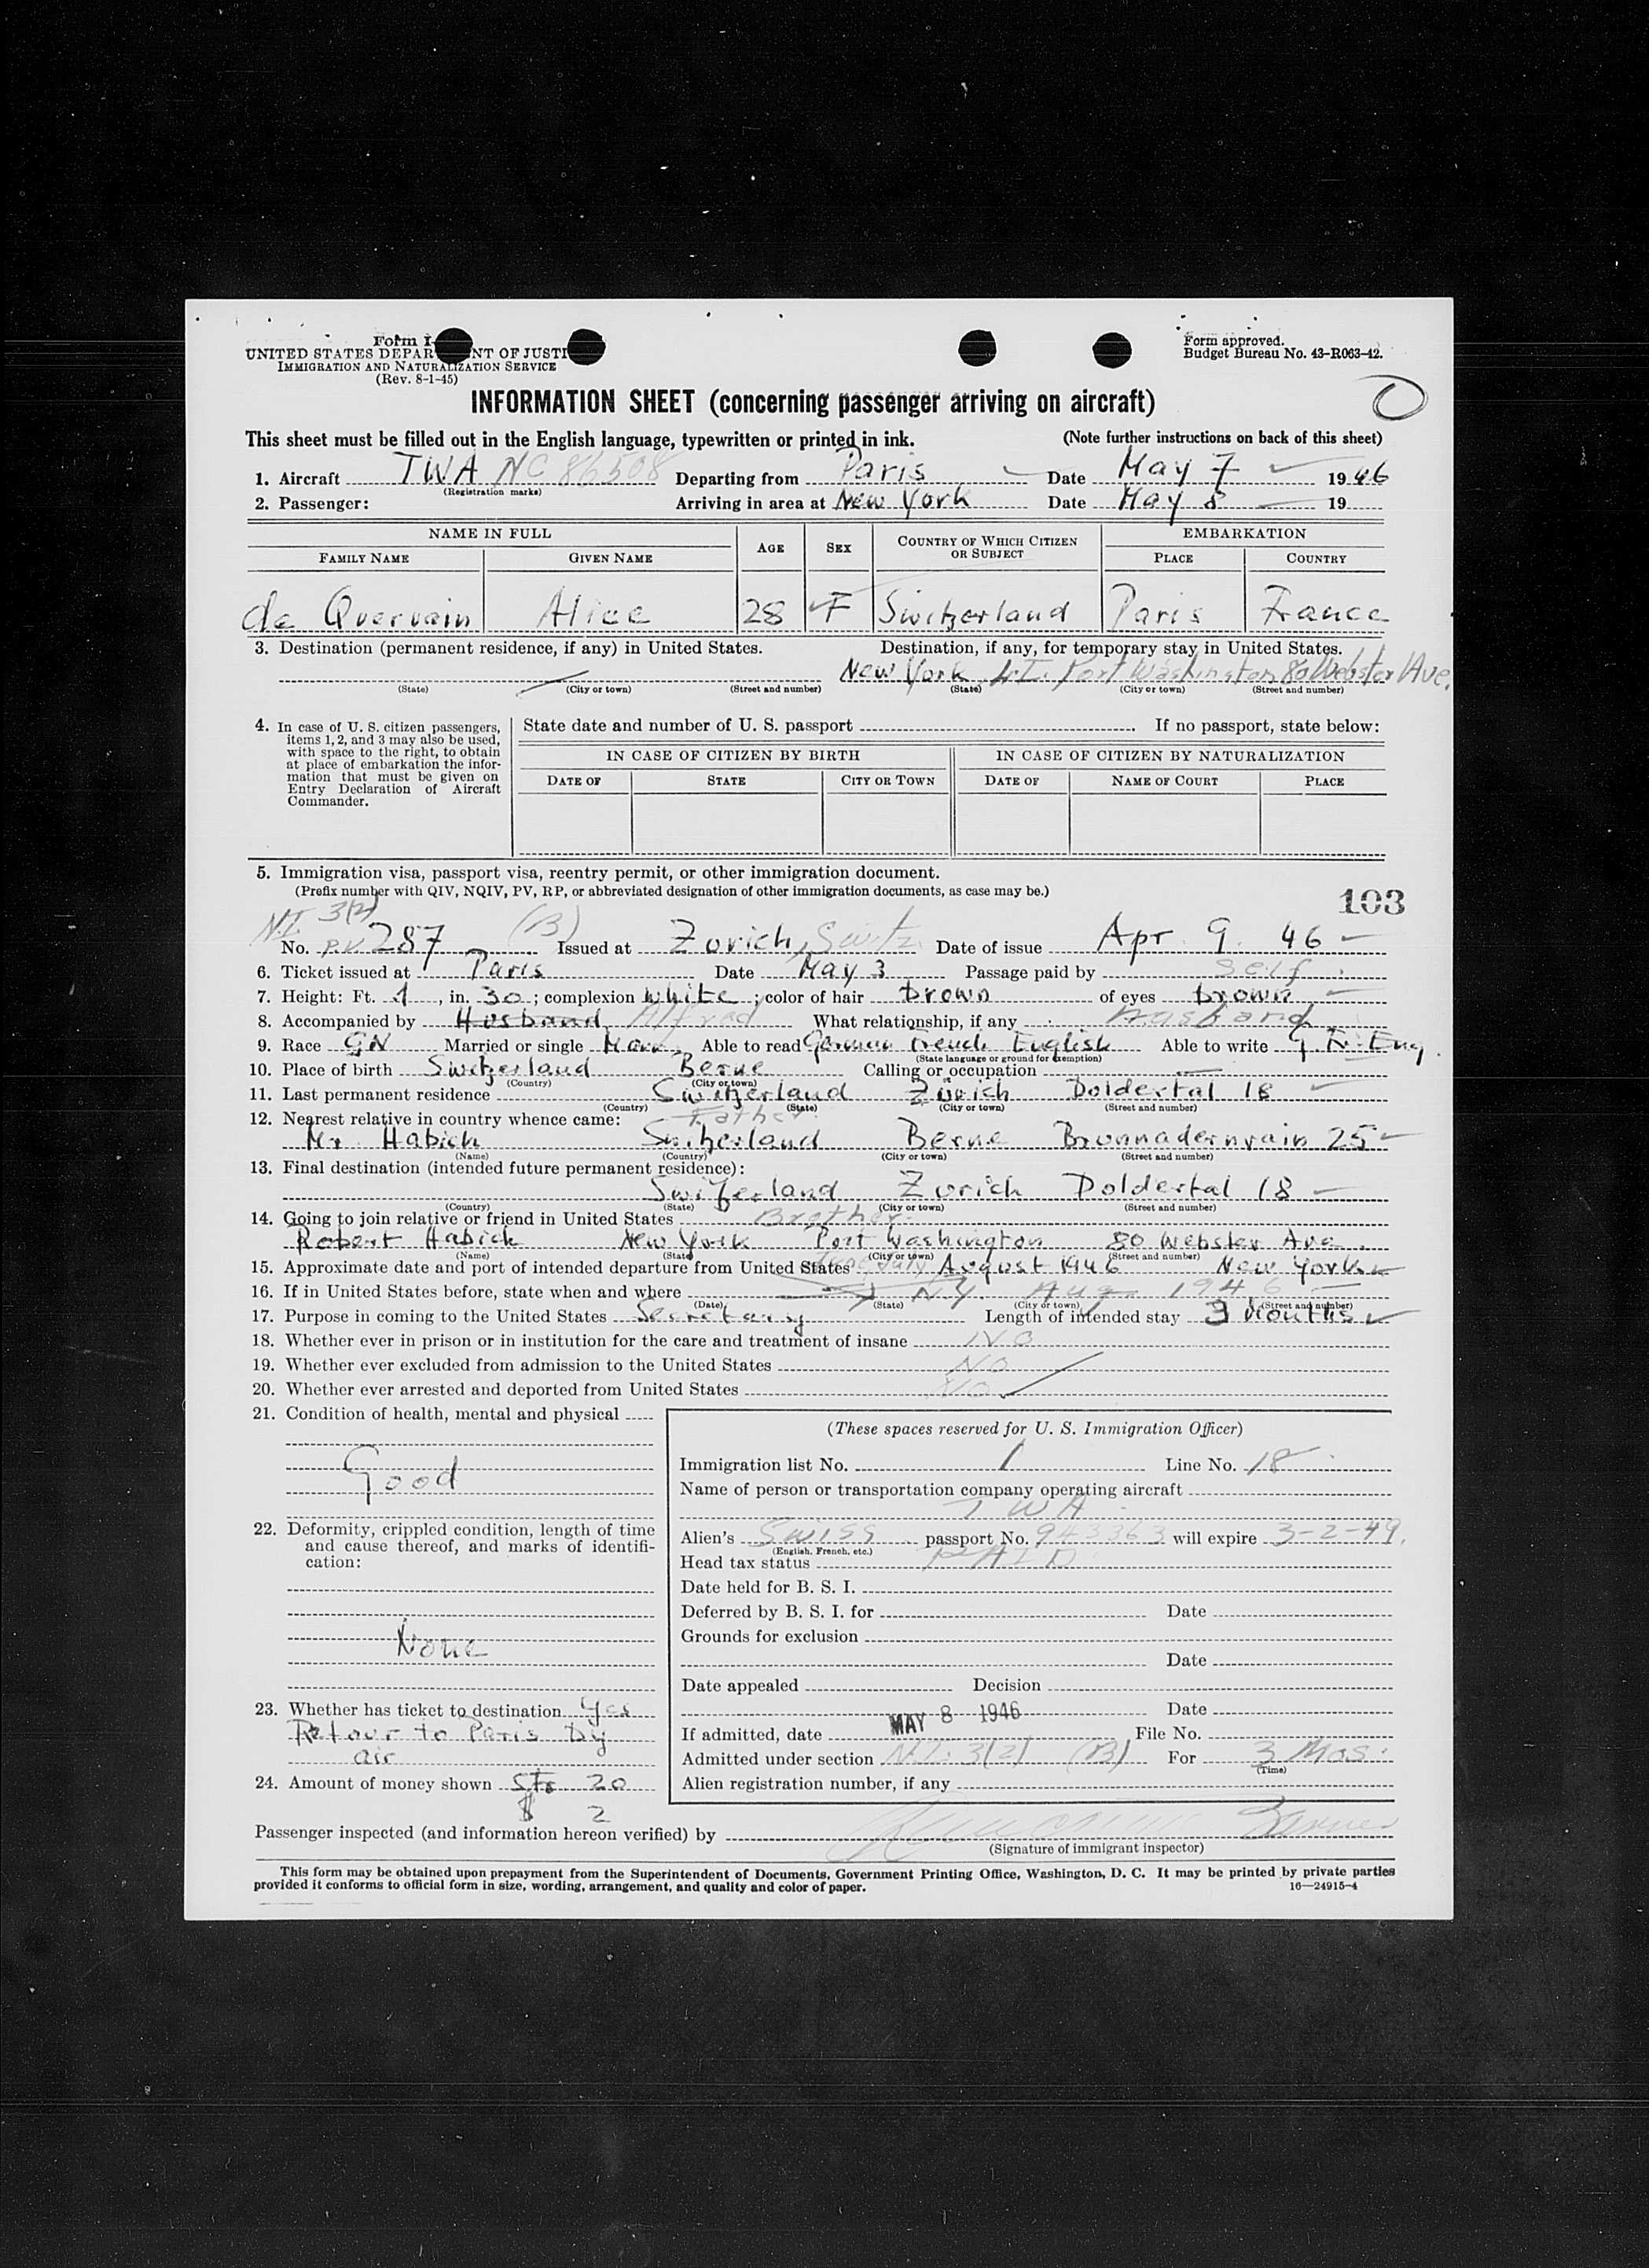 Form I-
UNITED STATES DEPAR NT OF JUSTI
IMMIGRATION AND NATURALIZATION SERVICE
(Rev. 8-1-45)
Form approved.
Budget Bureau No. 43-R063-42.
INFORMATION SHEET (concerning passenger arriving on aircraft)
This sheet must be filled out in the English language, typewritten or printed in ink. (Note further instructions on back of this sheet)
1. Aircraft TWA NC 86508 Departing from Paris Date May 7 1946
(Registration marks)
2. Passenger: Arriving in area at New York Date May 8 19
NAME IN FULL AGE SEX COUNTRY OF WHICH CITIZEN OR SUBJECT EMBARKATION
FAMILY NAME GIVEN NAME PLACE COUNTRY
de Quervain Alice 28 F Switzerland Paris France
3. Destination (permanent residence, if any) in United States. Destination, if any, for temporary stay in United States.
New York L.I. Port Washington 80 Webster Ave.
(State) (City or town) (Street and number) (State) (City or town) (Street and number)
4. In case of U. S. citizen passengers, items 1, 2, and 3 may also be used, with space to the right, to obtain at place of embarkation the information that must be given on Entry Declaration of Aircraft Commander.
State date and number of U. S. passport . If no passport, state below:
IN CASE OF CITIZEN BY BIRTH IN CASE OF CITIZEN BY NATURALIZATION
DATE OF STATE CITY OR TOWN DATE OF NAME OF COURT PLACE
5. Immigration visa, passport visa, reentry permit, or other immigration document.
(Prefix number with QIV, NQIV, PV, RP, or abbreviated designation of other immigration documents, as case may be.)
103
N.I. 3(2) (B)
No. P.V. 287 Issued at Zurich, Switz Date of issue Apr 9. 46
6. Ticket issued at Paris Date May 3 Passage paid by Self
7. Height: Ft. 1, in. 30; complexion white; color of hair brown of eyes brown
8. Accompanied by Husband Alfred What relationship, if any Husband
9. Race GN Married or single Marr. Able to read German French English Able to write G. Fr. Eng.
(State language or ground for exemption)
10. Place of birth Switzerland Berne Calling or occupation
(Country) (City or town)
11. Last permanent residence Switzerland Zürich Doldertal 18
(Country) (State) (City or town) (Street and number)
12. Nearest relative in country whence came: Father
Mr. Habich Switzerland Berne Brunnadernrain 25
(Name) (Country) (City or town) (Street and number)
13. Final destination (intended future permanent residence):
Switzerland Zurich Doldertal 18
(Country) (State) (City or town) (Street and number)
14. Going to join relative or friend in United States Brother
Robert Habich New York Port Washington 80 Webster Ave.
(Name) (State) (City or town) (Street and number)
15. Approximate date and port of intended departure from United States August 1946 New York
16. If in United States before, state when and where N.Y. Aug. 1946
(Date) (State) (City or town) (Street and number)
17. Purpose in coming to the United States Secretary Length of intended stay 3 Months
18. Whether ever in prison or in institution for the care and treatment of insane NO
19. Whether ever excluded from admission to the United States NO
20. Whether ever arrested and deported from United States NO
21. Condition of health, mental and physical
Good
22. Deformity, crippled condition, length of time and cause thereof, and marks of identification:
None
23. Whether has ticket to destination Yes
Retour to Paris by
air
24. Amount of money shown SFr 20
$ 2
(These spaces reserved for U. S. Immigration Officer)
Immigration list No. 1 Line No. 18
Name of person or transportation company operating aircraft
TWA
Alien's Swiss passport No. 943363 will expire 3-2-49.
(English, French, etc.)
Head tax status PAID
Date held for B. S. I.
Deferred by B. S. I. for Date
Grounds for exclusion
Date
Date appealed Decision
Date
If admitted, date MAY 8 1946 File No.
Admitted under section N.I. 3(2) (B) For 3 Mos.
(Time)
Alien registration number, if any
Passenger inspected (and information hereon verified) by
(Signature of immigrant inspector)
This form may be obtained upon prepayment from the Superintendent of Documents, Government Printing Office, Washington, D. C. It may be printed by private parties
provided it conforms to official form in size, wording, arrangement, and quality and color of paper. 16—24915-4